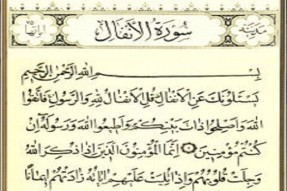 سورة الأنفال
بسم الله الرحمن الرحيم
يسئلونك عن الأنفال قل الأنفال لله والرسول فاتقوا
الله وأصلحوا ذات بينكم وأطيعوا الله ورسوله إن
كنتم مؤمنين ۝ إنما المؤمنون الذين إذا ذكر الله
وجلت قلوبهم وإذا تليت عليهم آياته زادتهم إيمانا